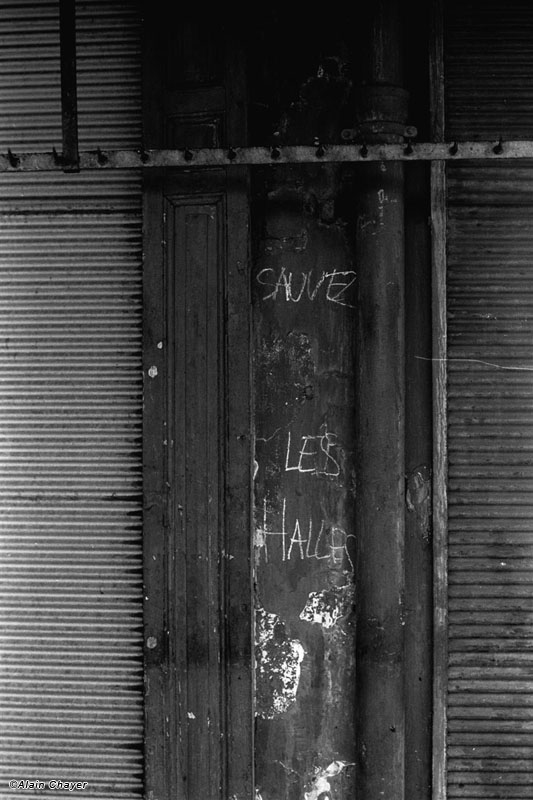 SAUVEZ
LES
HALLES
©Alain Chayer